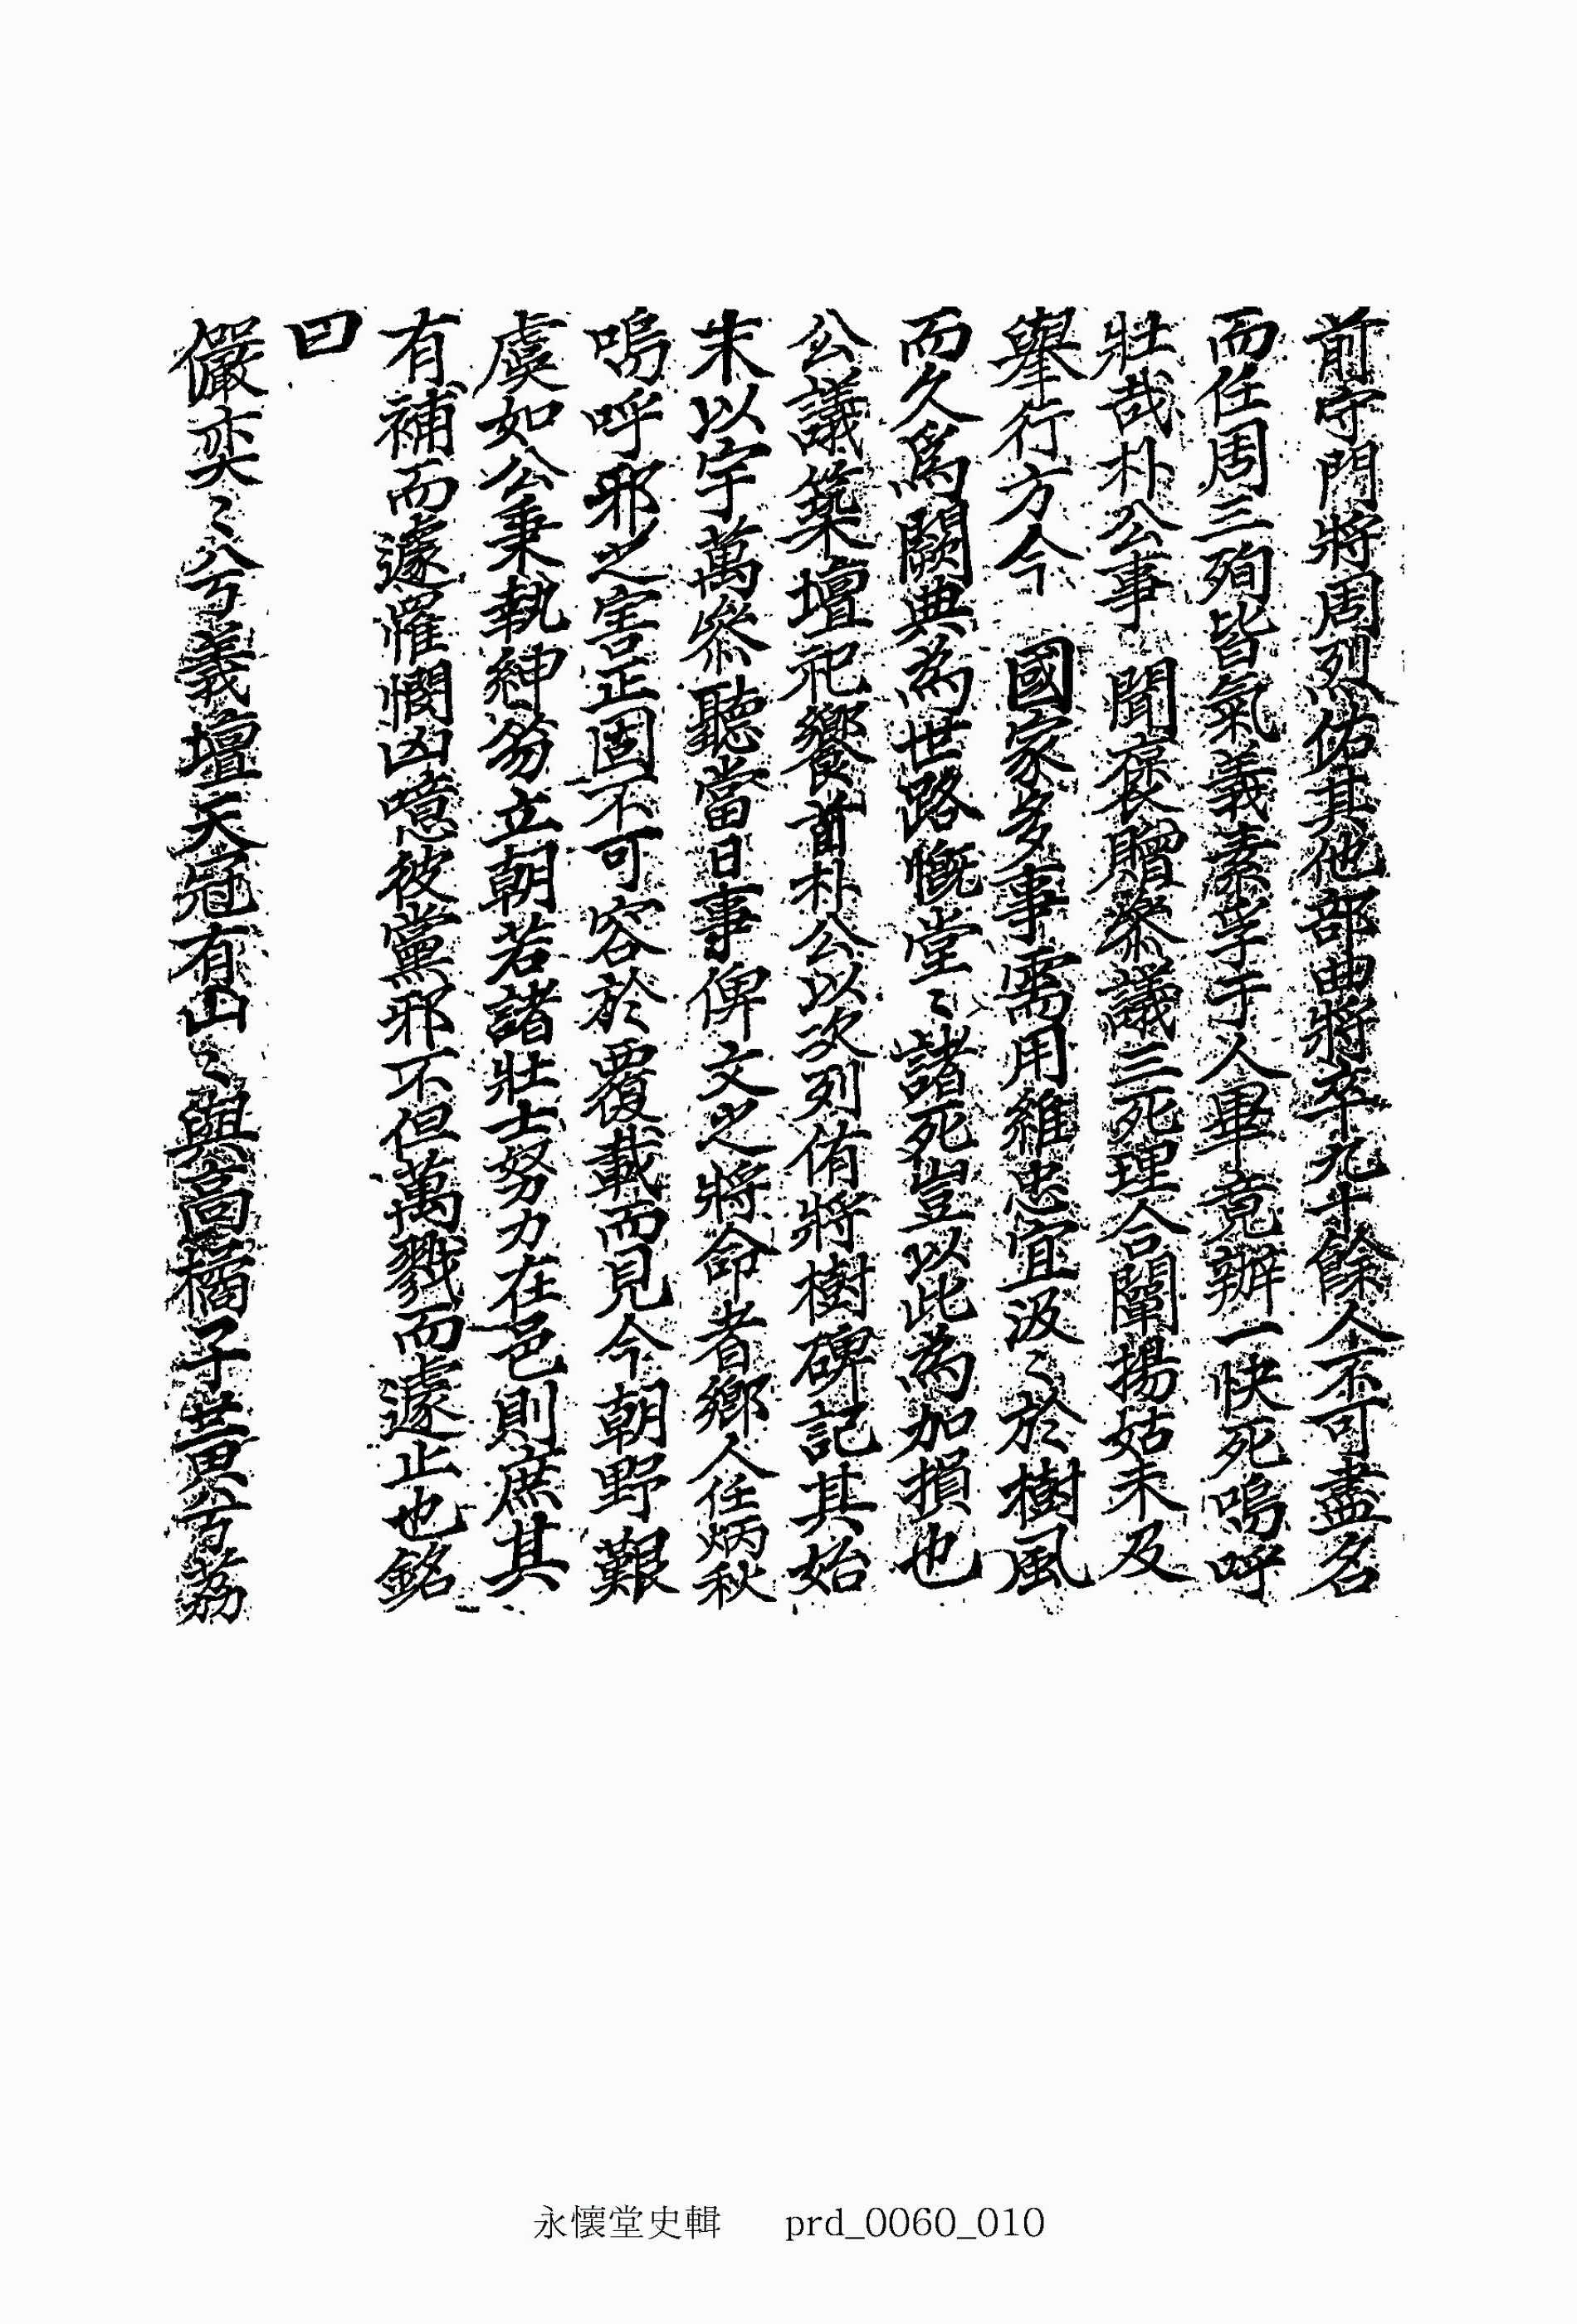 前守門將周烈佑其他部曲將卒九十餘人不可盡名
而任周三殉皆氣義素孚于人畢竟辦一快死嗚呼
壯哉朴公事 聞褒贈參議三死理合闡揚姑未及
舉行方今 國家多事需用維忠宜汲〻於樹風
而久爲闕典為世路慨堂〻諸死豈以此為加損也
公議築壇祀饗首朴公以次列侑將樹碑記其始
末以宇萬參聽當日事俾文之將命者鄉人任炳秋
嗚呼邪之害正固不可容於覆載而見今朝野艱
虞如公秉執紳笏立朝若諸壯士努力在邑則庶其
有補而遽罹憫凶噫彼黨邪不但萬戮而遽止也銘
曰
儼奕〻兮義壇天冠有山〻與高橘子黃兮荔